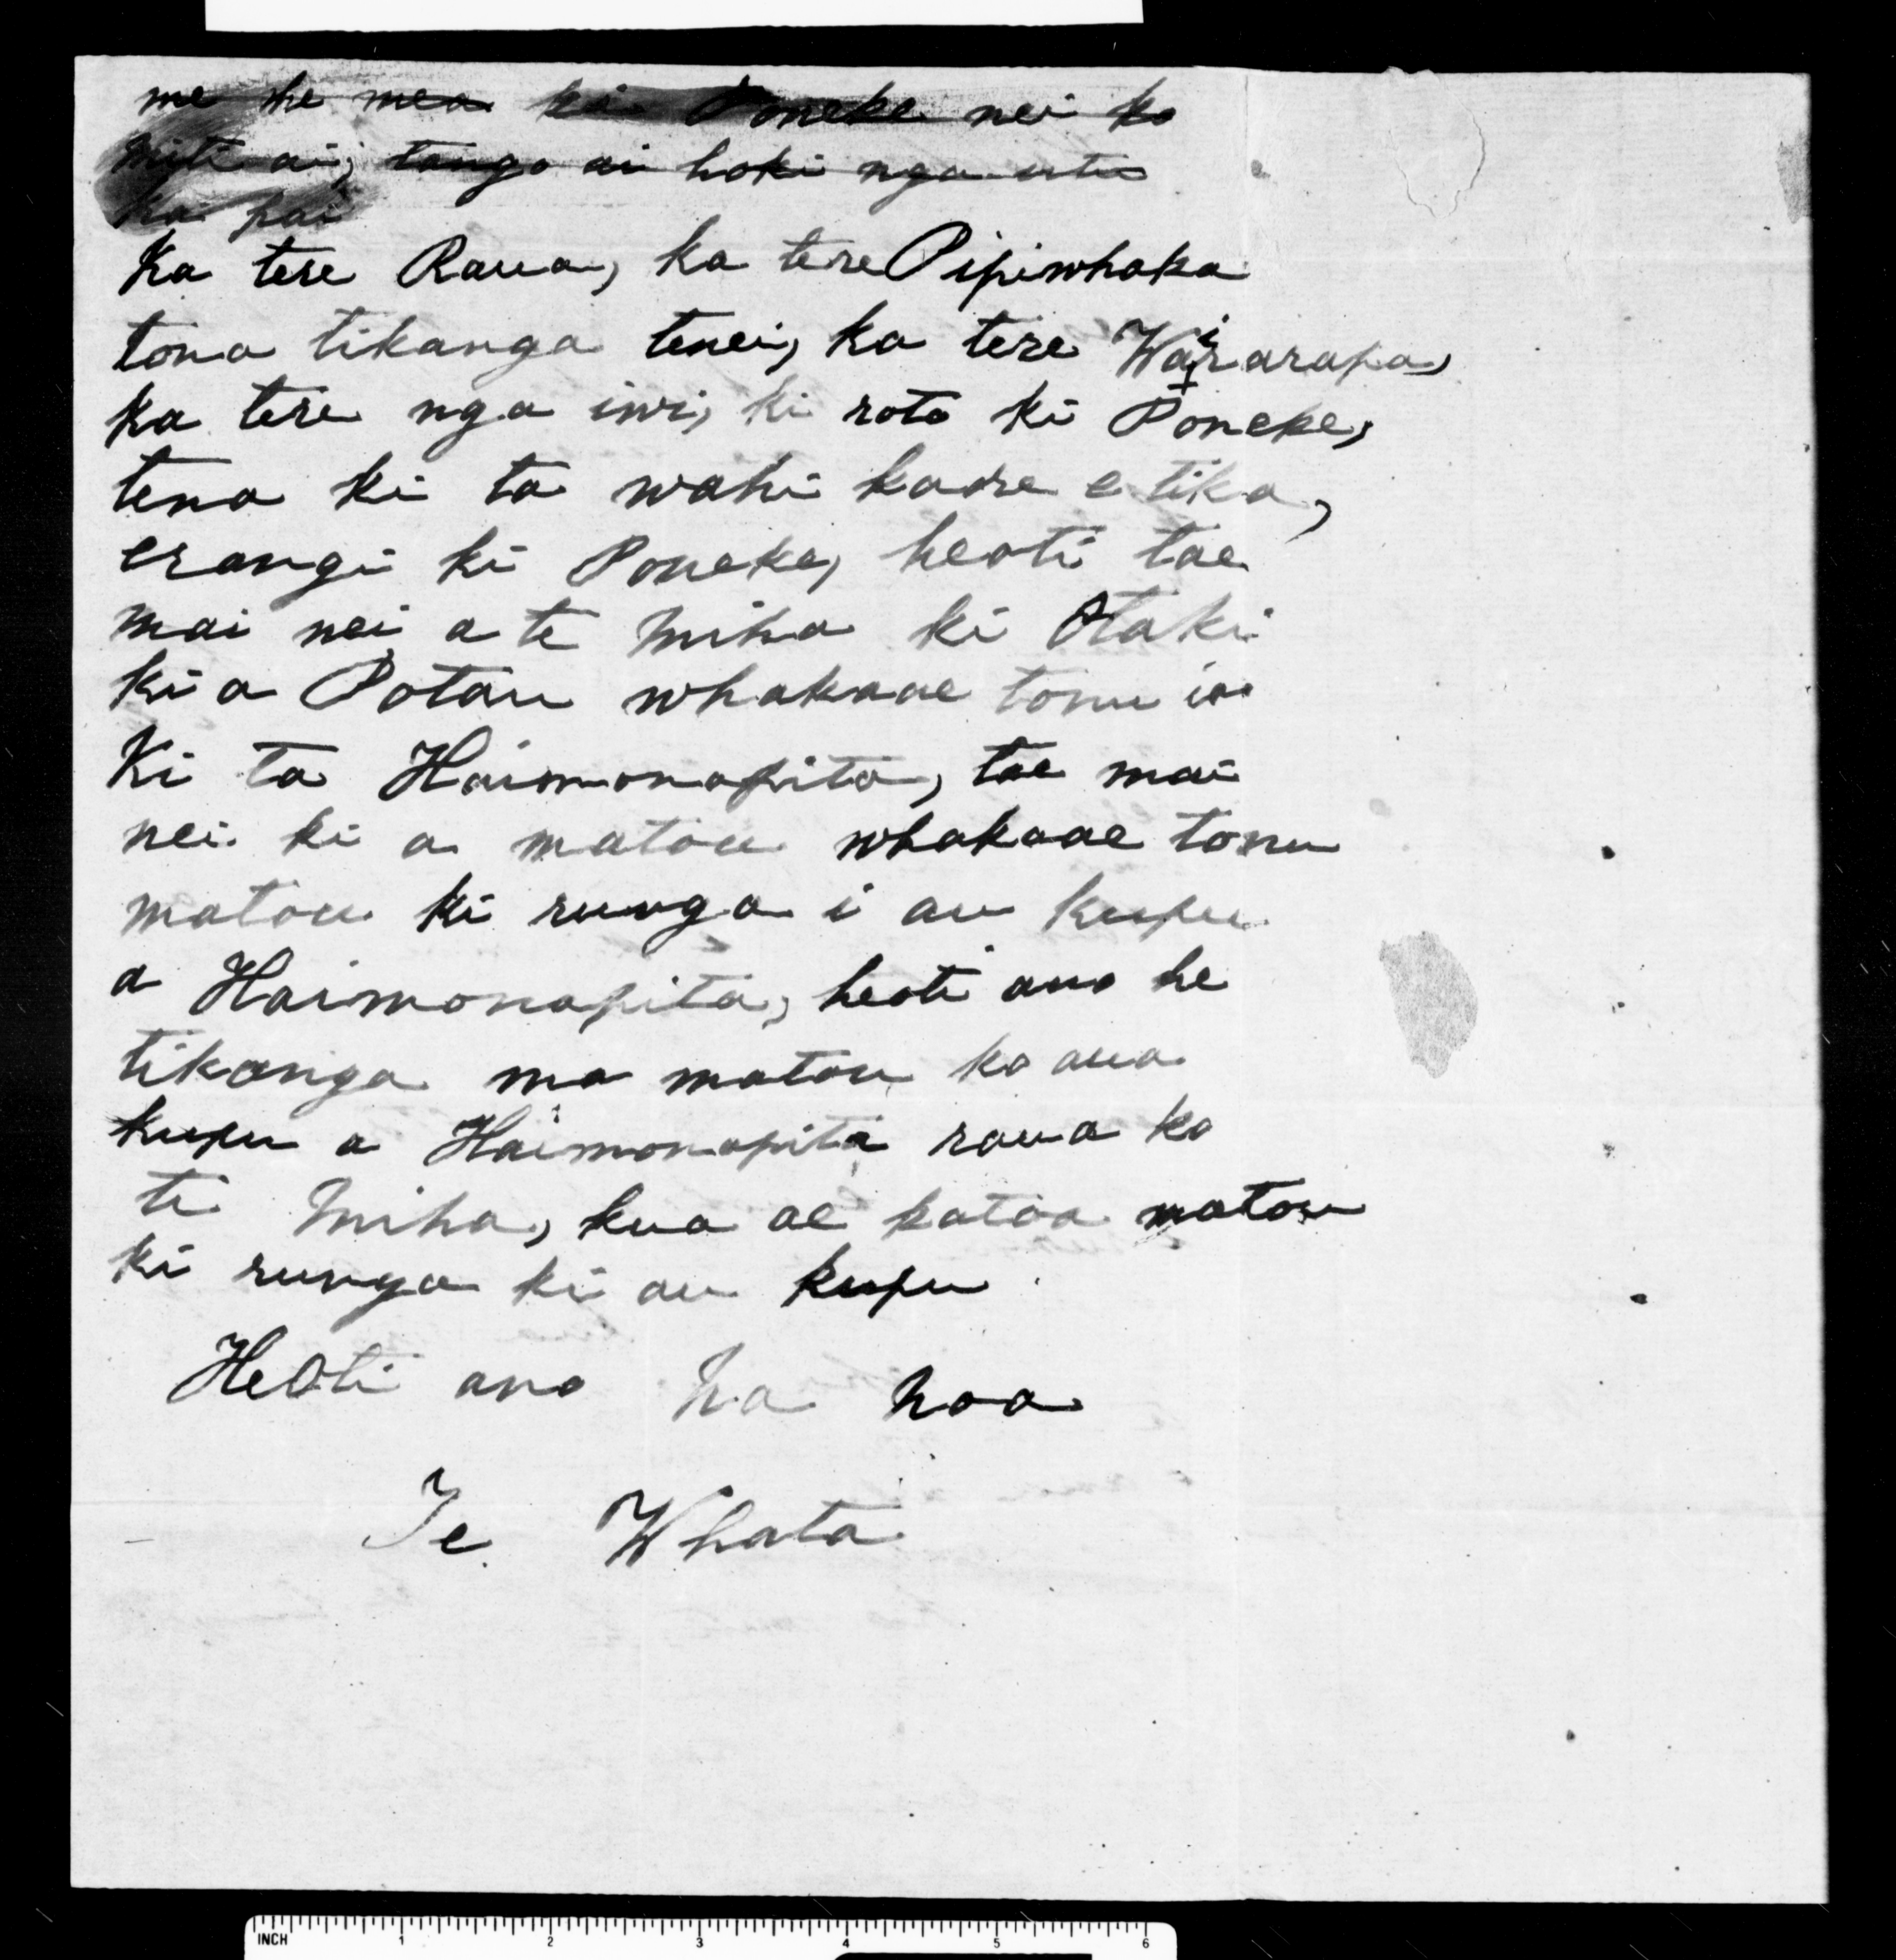 me he mea ki Poneke nei ko
miti ai, tango ai hoki nga utu
ka pai
Ka tere Raua, ka tere Pipiwhaka
tona tikanga tenei, ka tere Wairarapa,
ka tere nga iwi, ki roto ki Poneke,
tena ki ta wahi kaore e tika,
erangi ki Poneke, heoti tae
mai nei a te Miha ki Otaki
ki a Potau whakaae tonu ia
Ki ta Haimonapita, tae mai
nei ki a matou whakaae tonu
matou ki runga i au kupu
a Haimonapita, heoti ano he
tikanga ma matou ko aua
kupu a Haimonapita raua ko
te Miha, kua ae katoa matou
ki runga ki au kupu
HeOti ano na hoa
Te Whata
INCH 1 2 3 4 5 6